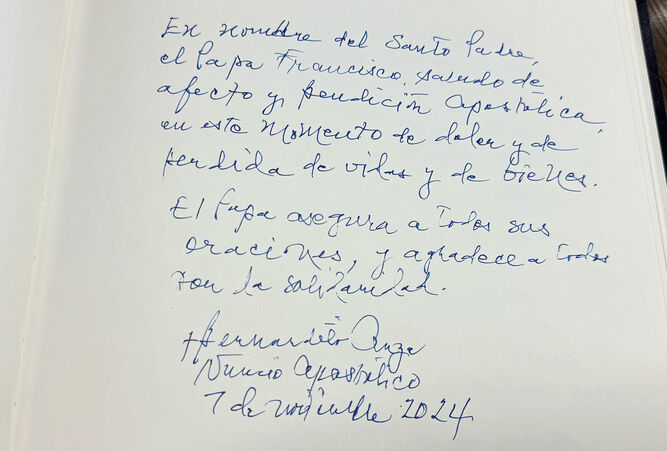 En nombre del Santo Padre,
el Papa Francisco, saludo de
afecto y bendición apostólica,
en este momento de dolor y de
perdida de vidas y de bienes.
El Papa asegura a todos sus
oraciones, y agradece a todos
por la solidaridad.
+Bernardito Auza
Nuncio Apostólico
7 de noviembre 2024